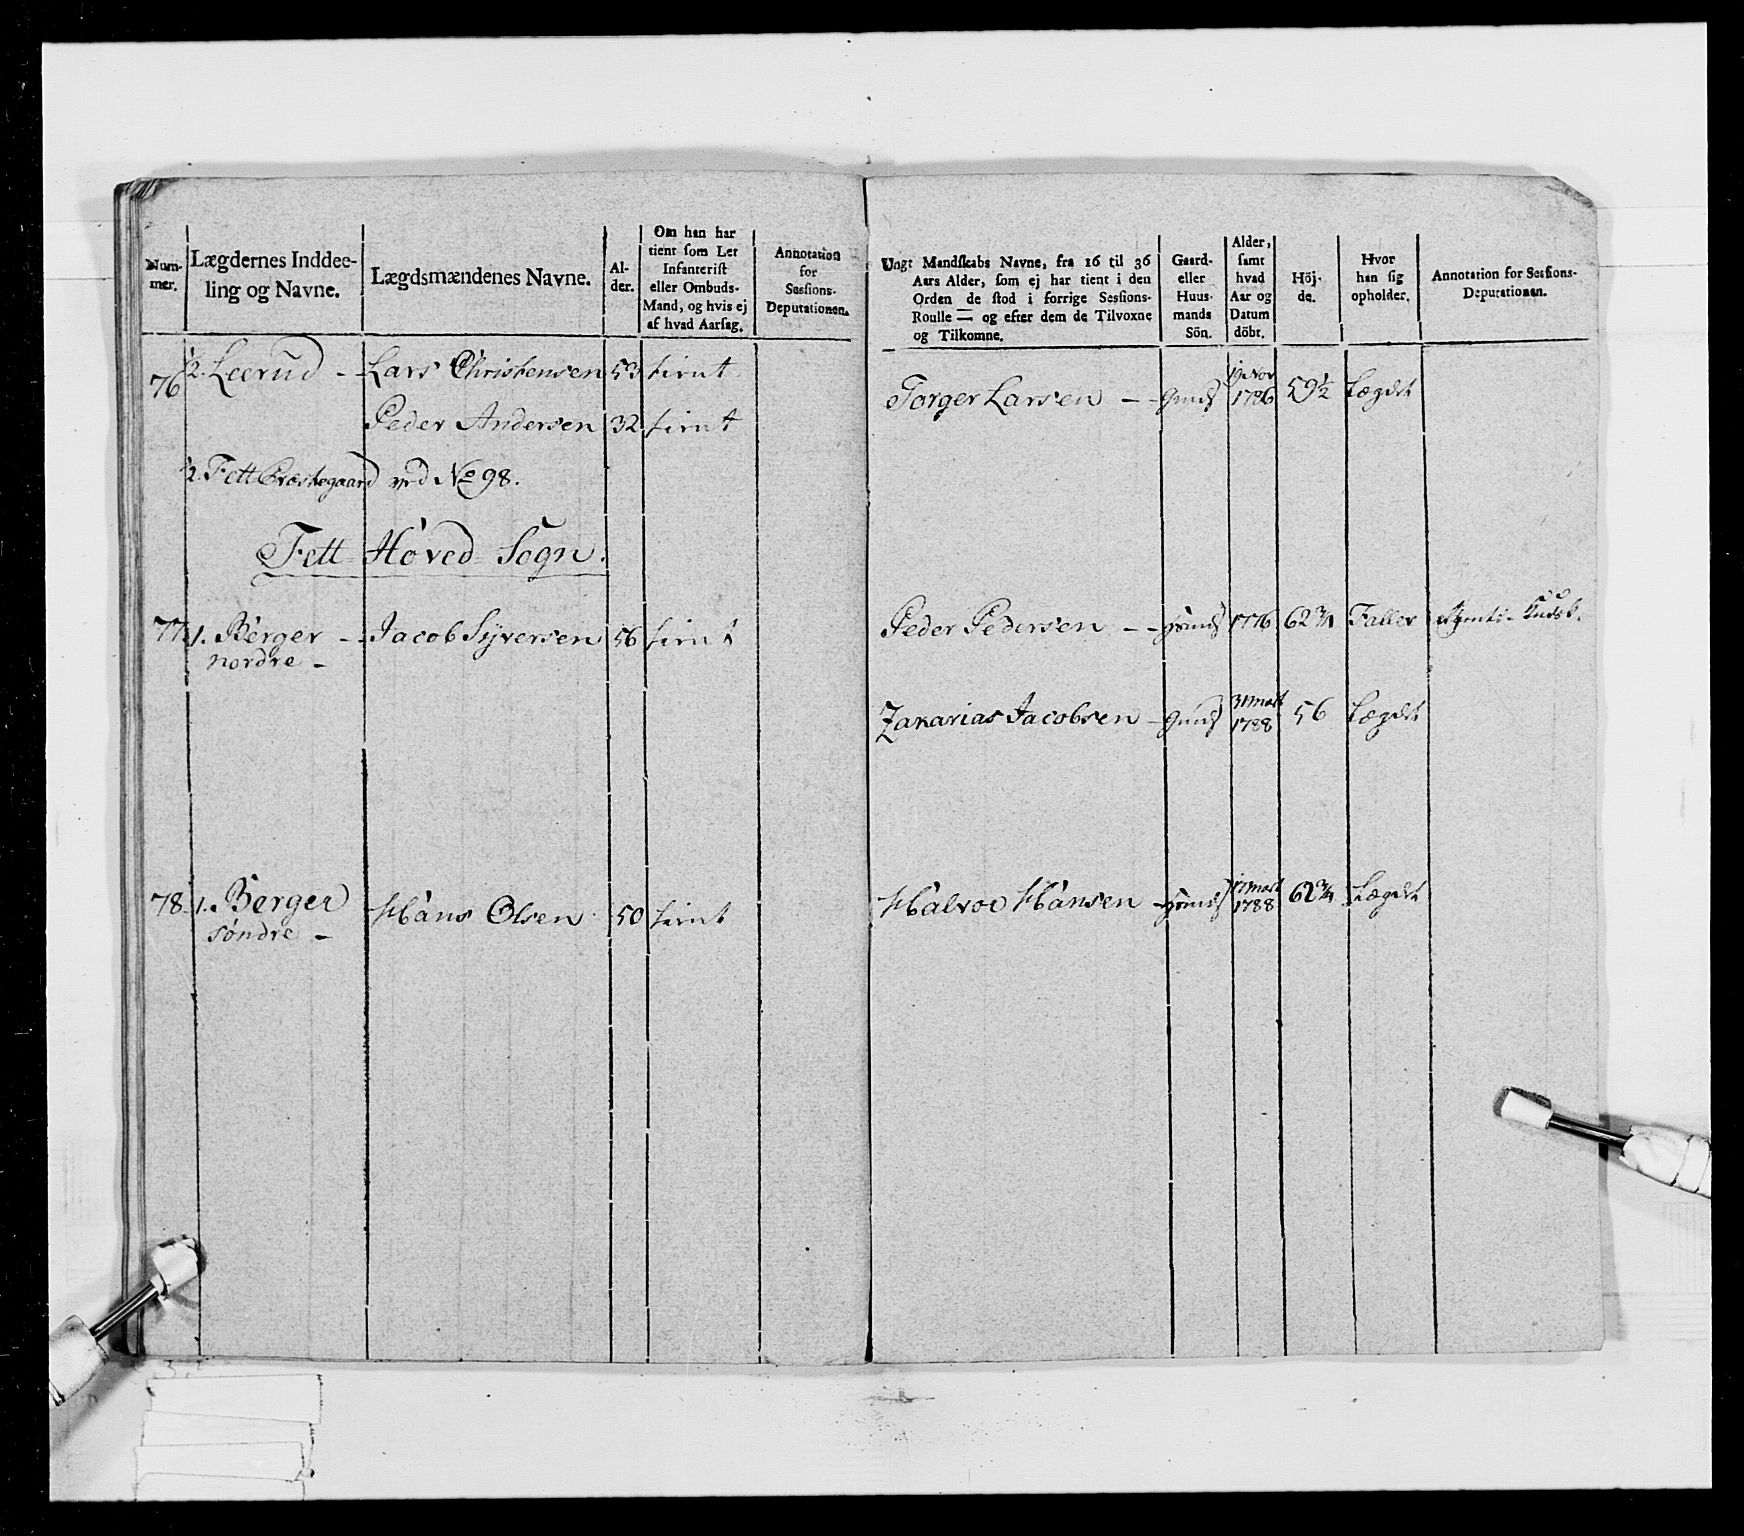 Num-
mer.
Lægdernes Inddee-
ling og Navne.
Lægdsmændenes Navne.
Al-
der.
Om han har
tient som Let
Infanterist
eller Ombuds-
Mand, og hvis ej
af hvad Aarsag.
Annotation
for
Sessions-
Deputationen.
76 2. Leerud - Lars Christensen 53 tient
Peder Andersen 32 tient
2. Fett Præstegaard ved No 98.
Fett Hoved Sogn.
77 1. Berger - Jacob Syversen 56 tient
nordre -
78. 1. Berger Hans Olsen 50 tient
søndre -
Ungt Mandskabs Navne, fra 16 til 36
Aars Alder, som ej har tient i den
Orden de stod i forrige Sessions-
Roulle — og efter dem de Tilvoxne
og Tilkomne.
Gaard-
eller
Huus-
mands
Sön.
Alder,
samt
hvad
Aar og
Datum
döbt.
Höj-
de.
Hvor
han sig
opholder.
Annotation for Sessions-
Deputationen.
19 Nov
Torger Larsen - 1786 59½ Lægdet
Peder Pedersen - 1776 62¾ Faller Kudsk.
31 Mart
Zakarias Jacobsen - 1788 56 Lægdet
17 Mart
Halvor Hansen 1788 62¾ Lægdet